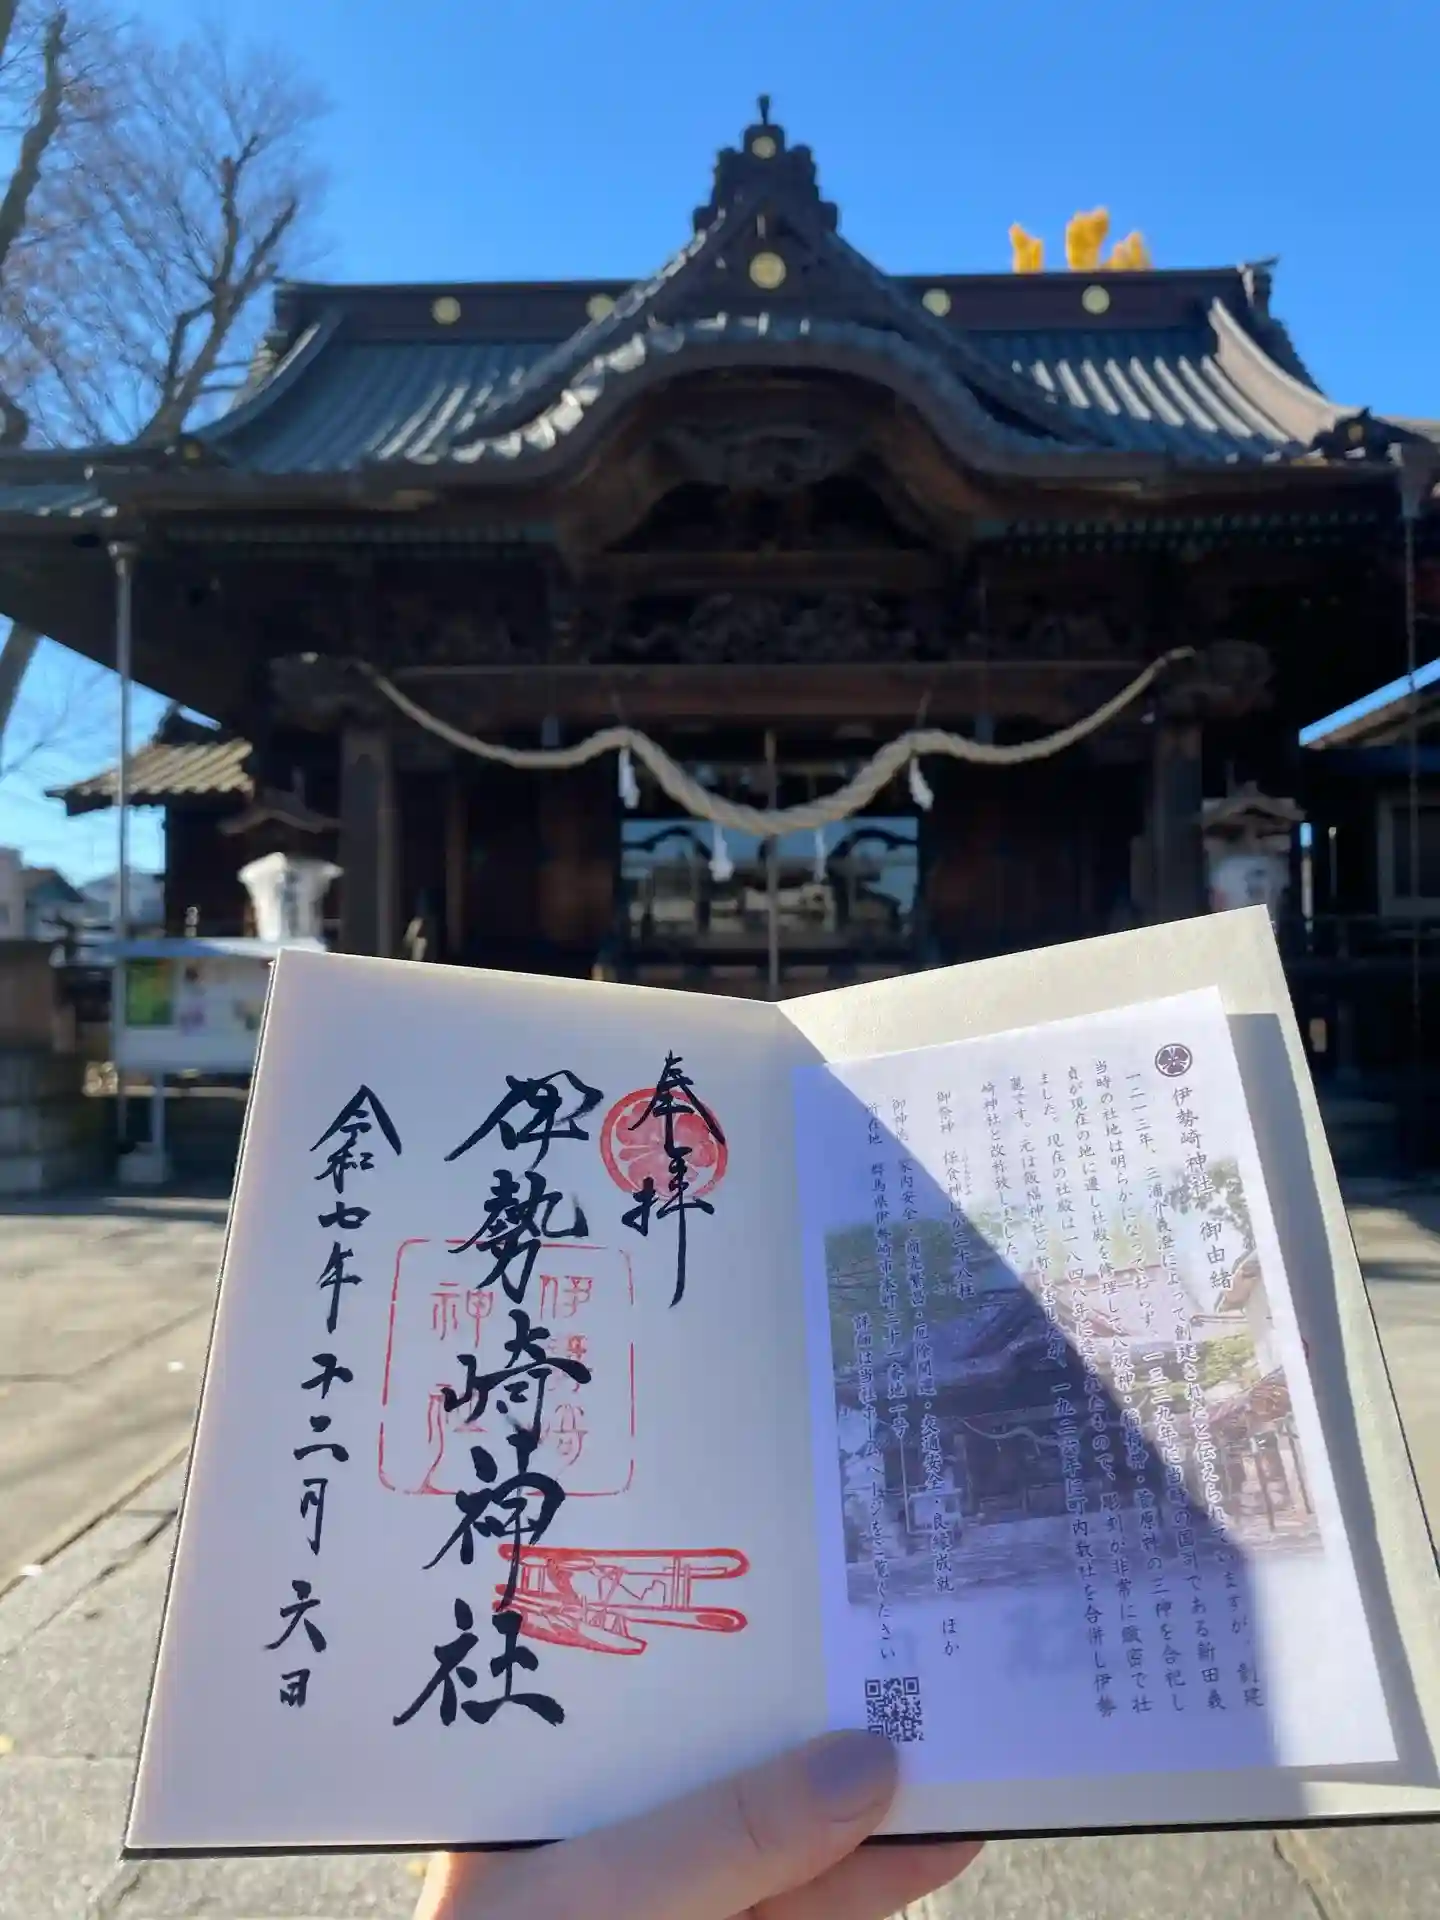 奉拝
伊勢崎神社
令和七年十二月六日
伊勢崎
神社
伊勢崎神社 御由緒
一二一三年、三浦介義澄によって創建されたと伝えられていますが、創建
当時の社地は明らかになっておらず、一三二九年に当時の国司である新田義
貞が現在の地に遷し社殿を修理して八坂神・稲荷神・菅原神の三神を合祀し
ました。現在の社殿は一八四八年に造られたもので、彫刻が非常に緻密で壮
麗です。元は飯福神社と称しましたが、一九二六年に町内数社を合併し伊勢
崎神社と改称致しました。
御祭神 保食神ほか二十八柱
御神徳 家内安全・商売繁昌・厄除開運・交通安全・良縁成就 ほか
所在地 群馬県伊勢崎市本町二十一番地一号
詳細は当社ホームページをご覧ください